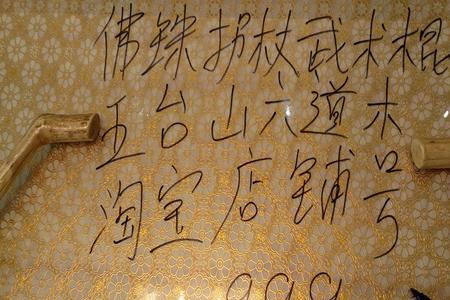 佛珠拐杖武术棍
五台山六道木
淘宝店铺号